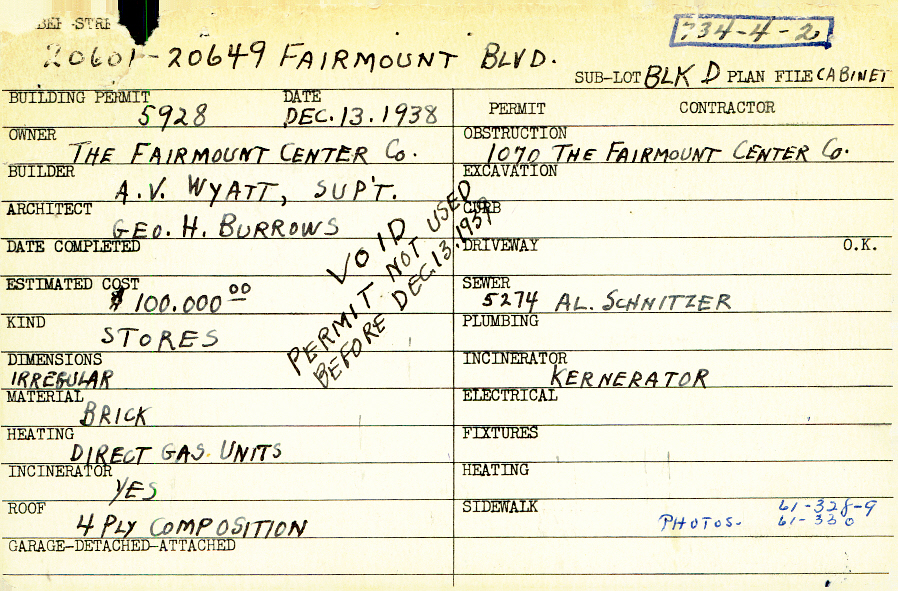 734-4-2
20601-20649 FAIRMOUNT BLVD.
SUB-LOT BLK D PLAN FILE CABINET
BUILDING PERMIT 5928 DATE DEC. 13. 1938
OWNER THE FAIRMOUNT CENTER CO.
BUILDER A.V. WYATT, SUP'T.
ARCHITECT GEO. H. BURROWS
DATE COMPLETED
ESTIMATED COST $ 100.000 00
KIND STORES
DIMENSIONS IRREGULAR
MATERIAL BRICK
HEATING DIRECT GAS UNITS
INCINERATOR YES
ROOF 4 PLY COMPOSITION
GARAGE-DETACHED-ATTACHED
VOID
PERMIT NOT USED
BEFORE DEC. 13, 1939
PERMIT CONTRACTOR
OBSTRUCTION 1070 THE FAIRMOUNT CENTER CO.
EXCAVATION
CURB
DRIVEWAY O.K.
SEWER 5274 AL. SCHNITZER
PLUMBING
INCINERATOR KERNERATOR
ELECTRICAL
FIXTURES
HEATING
SIDEWALK
PHOTOS- 61-328-9
61-330